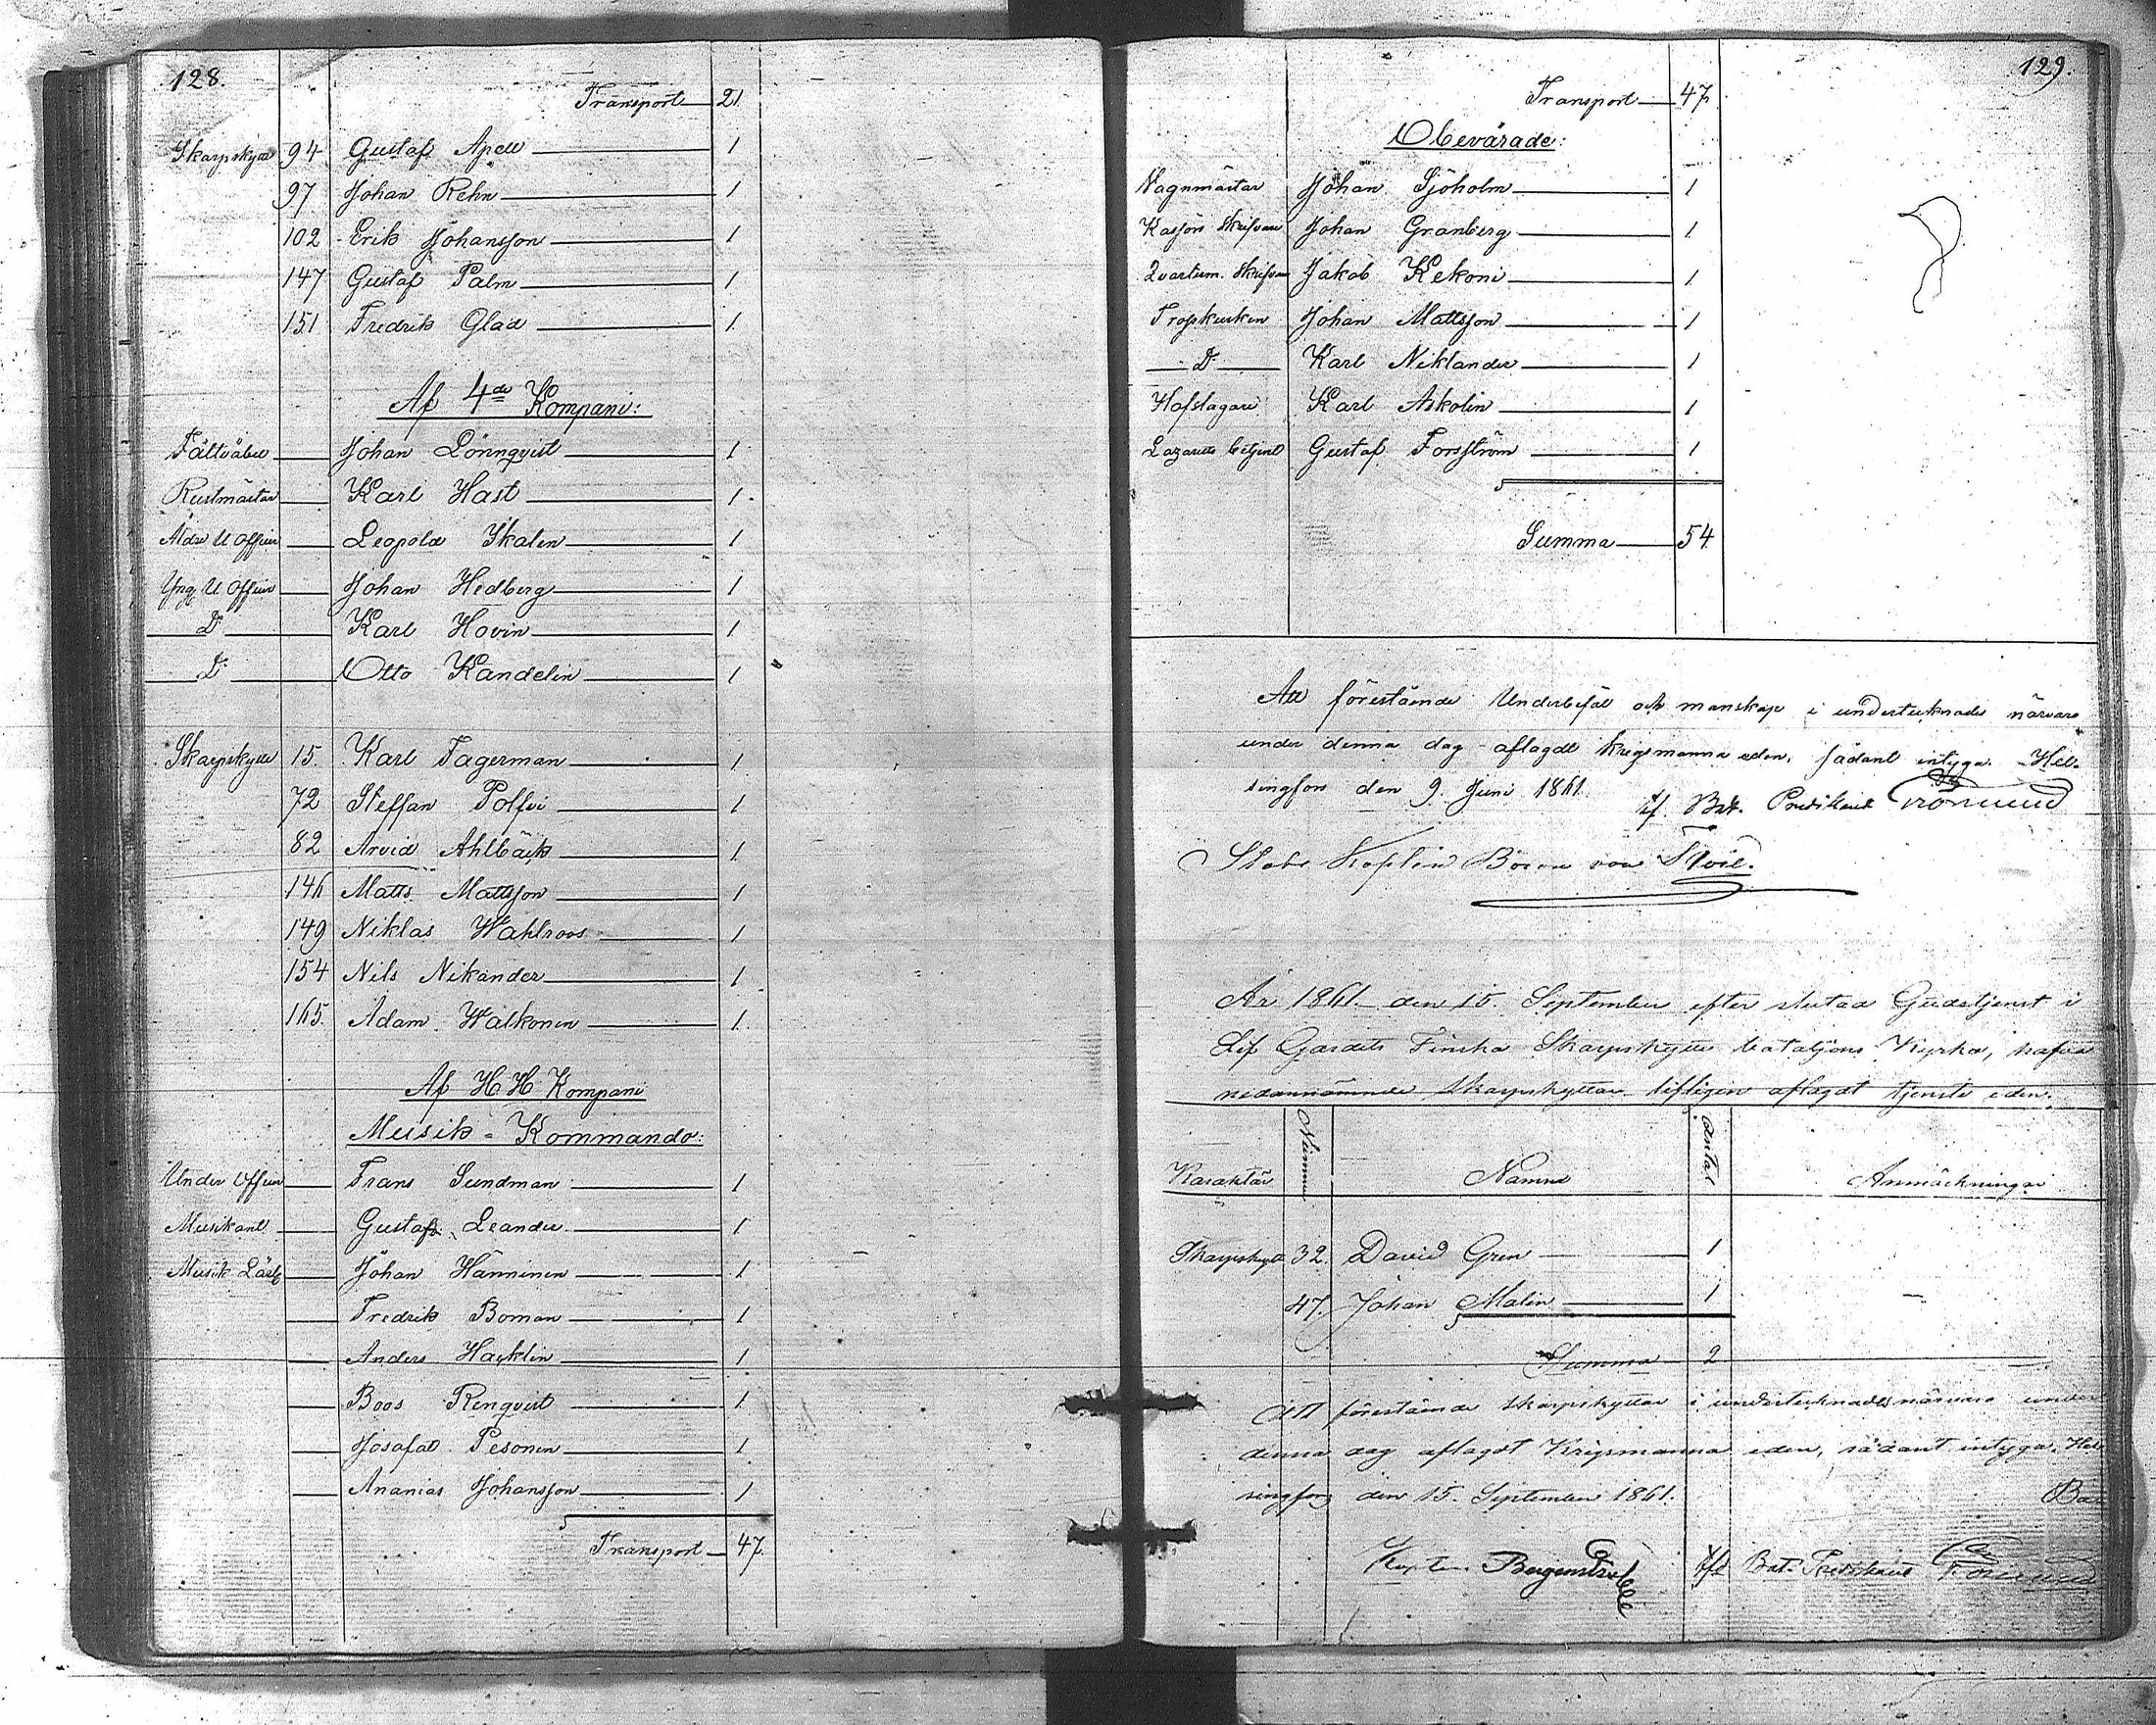 128.
Transport 21.
Skarpskytte 94 Gustaf Apell 1
97 Johan Rehn 1
102 Erik Johansson 1
147 Gustaf Palm 1
151 Fredrik Glad 1
Af 4de Kompani:
Fältväbel Johan Lönnqvist 1
Rustmästar Karl Hast 1
Äldre U Officer Leopold Skalen 1
Yng. U Officer Johan Hedberg 1
D: Karl Hovin 1
D: Otto Kandelin 1
Skarpskytte 15. Karl Fagerman 1
72 Steffan Polfvi 1
82 Arvid Ahlbäck 1
146 Matts Mattsson 1
149 Niklas Wahlroos 1
154 Nils Nikander 1
165. Adam Walkonen 1
Af H. H. Kompani
Musik-Kommando:
Under Officer Frans Sundman 1
Musikant Gustaf Leander 1
Musik Lärl. Johan Hänninen 1
Fredrik Boman 1
Anders Hacklin 1
Boos Renqvist 1
Josafat Pesonen 1
Ananias Johansson 1
Transport 47.
129.
Transport 47.
Obevärade:
Vagnmästar Johan Sjöholm 1
Kassörs Skrifvare Johan Granberg 1
Qvarterm. Skrifvare Jakob Kekoni 1
Trosskusken Johan Mattsson 1
D: Karl Niklander 1
Hofslagare Karl Askolin 1
Lazaretts betjent Gustaf Forsström 1
Summa 54
Att förestående Underbefäl och manskap i undertecknades närvaro
under denna dag aflagdt krigsmanna eden, sådant intyga. Hel-
singfors den 9. Juni 1861.
Tf. Bat. Predikant
Stabs Kapten Baron von
År 1861. den 15. September efter slutad Gudstjenst i
Lif Gardets Finska Skarpskytte bataljons Kyrka, hafva
nedannämnde Skarpskyttar lifligen aflagdt tjenste eden:
Karaktär Nummer Namn Antal Anmärkningar
Skarpskytt 32. David Gren 1
47. Johan Malin 1
Summa 2
Att förestående skarpskyttar i undertecknades närvaro under
denna dag aflagdt Krigsmanna eden, sådant intyga, Hel
singfors den 15. September 1861.
Ba
Kapten Bergenstråhle Tf. Bat. Predikant